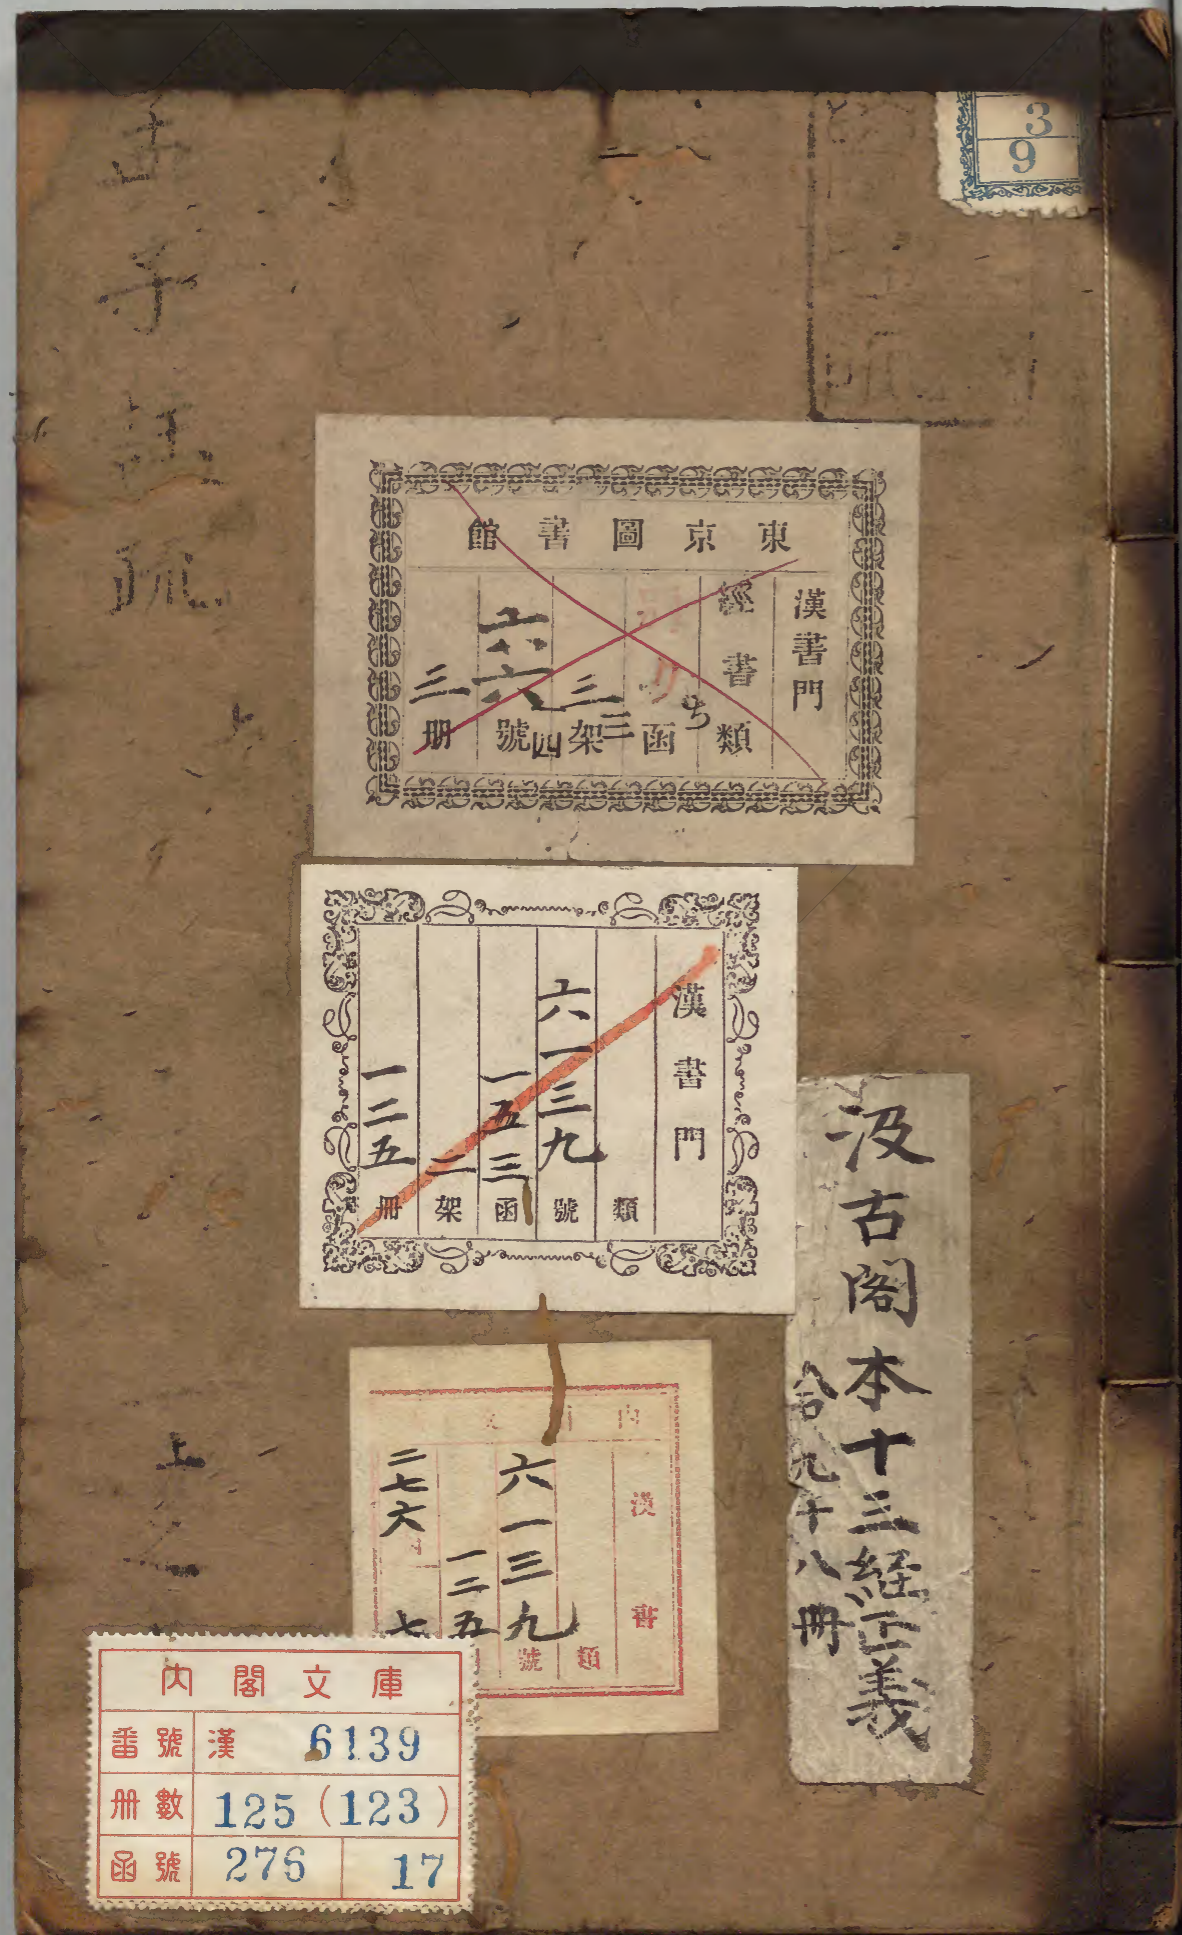 孟子註疏
上之
3
9
東京圖書館
漢書門
經書類
函
三三架
六六四號
三册
漢書門
類
六一三九號
一五三函
二架
一二五冊
汲古閣本十三経正義
九十八冊
漢書
類
六一三九號
一二五
二七六
七
內閣文庫
番號 漢 6139
册數 125 (123)
函號 276 17